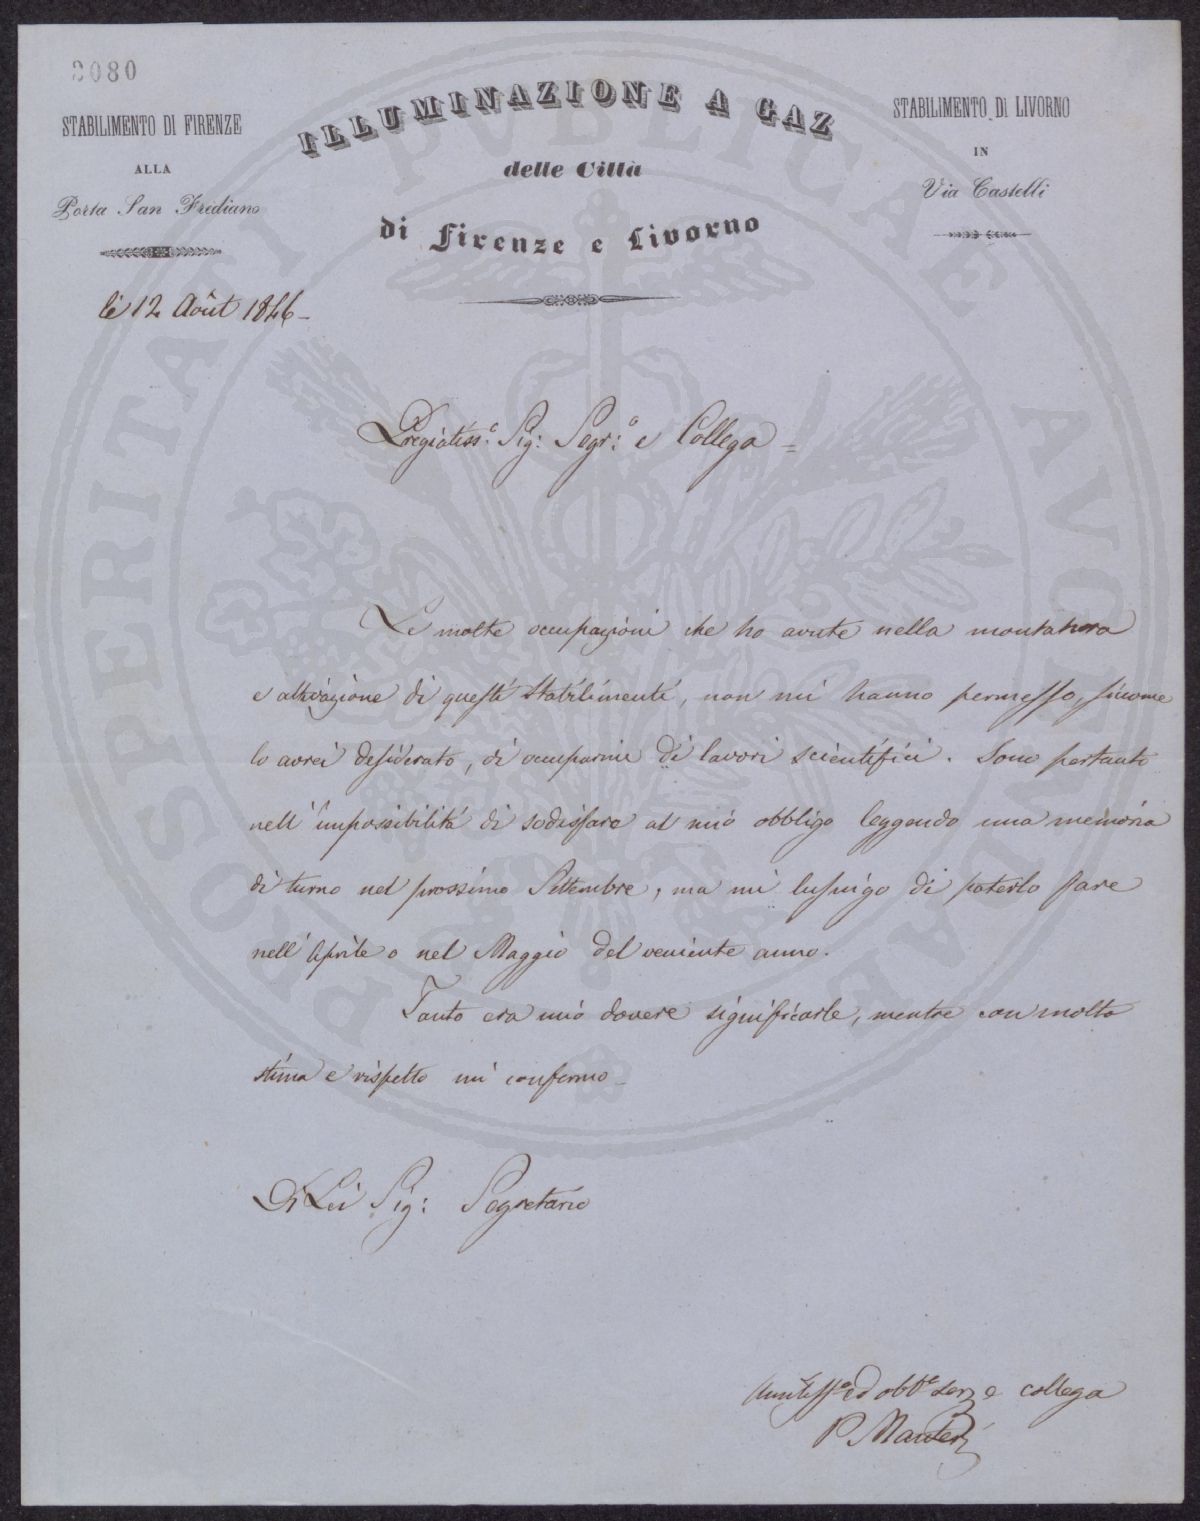 3080
STABILIMENTO DI FIRENZE
ALLA
Porta San Frediano
ILLUMINAZIONE A GAZ
delle Città
di Firenze e Livorno
STABILIMENTO DI LIVORNO
IN
Via Castelli
le 12 Août 1846 –
Pregiatiss:e Sig: Segr:o e Collega =
Le molte occupazioni che ho avute nella montatura
e attivazione di questi Stabilimenti, non mi hanno permesso, siccome
lo avrei desiderato, di occuparmi di lavori scientifici. Sono pertanto
nell'impossibilità di sodisfare al mio obbligo leggendo una memoria
di turno nel prossimo Settembre, ma mi lusingo di poterlo fare
nell'Aprile o nel Maggio del veniente anno.
Tanto era mio dovere significarle, mentre con molta
stima e rispetto mi confermo –
Di Lei Sig: Segretario
ed obb.e ser: e collega
P. Manteri
PROSPERITATI PVBLICAE AVGENDAE